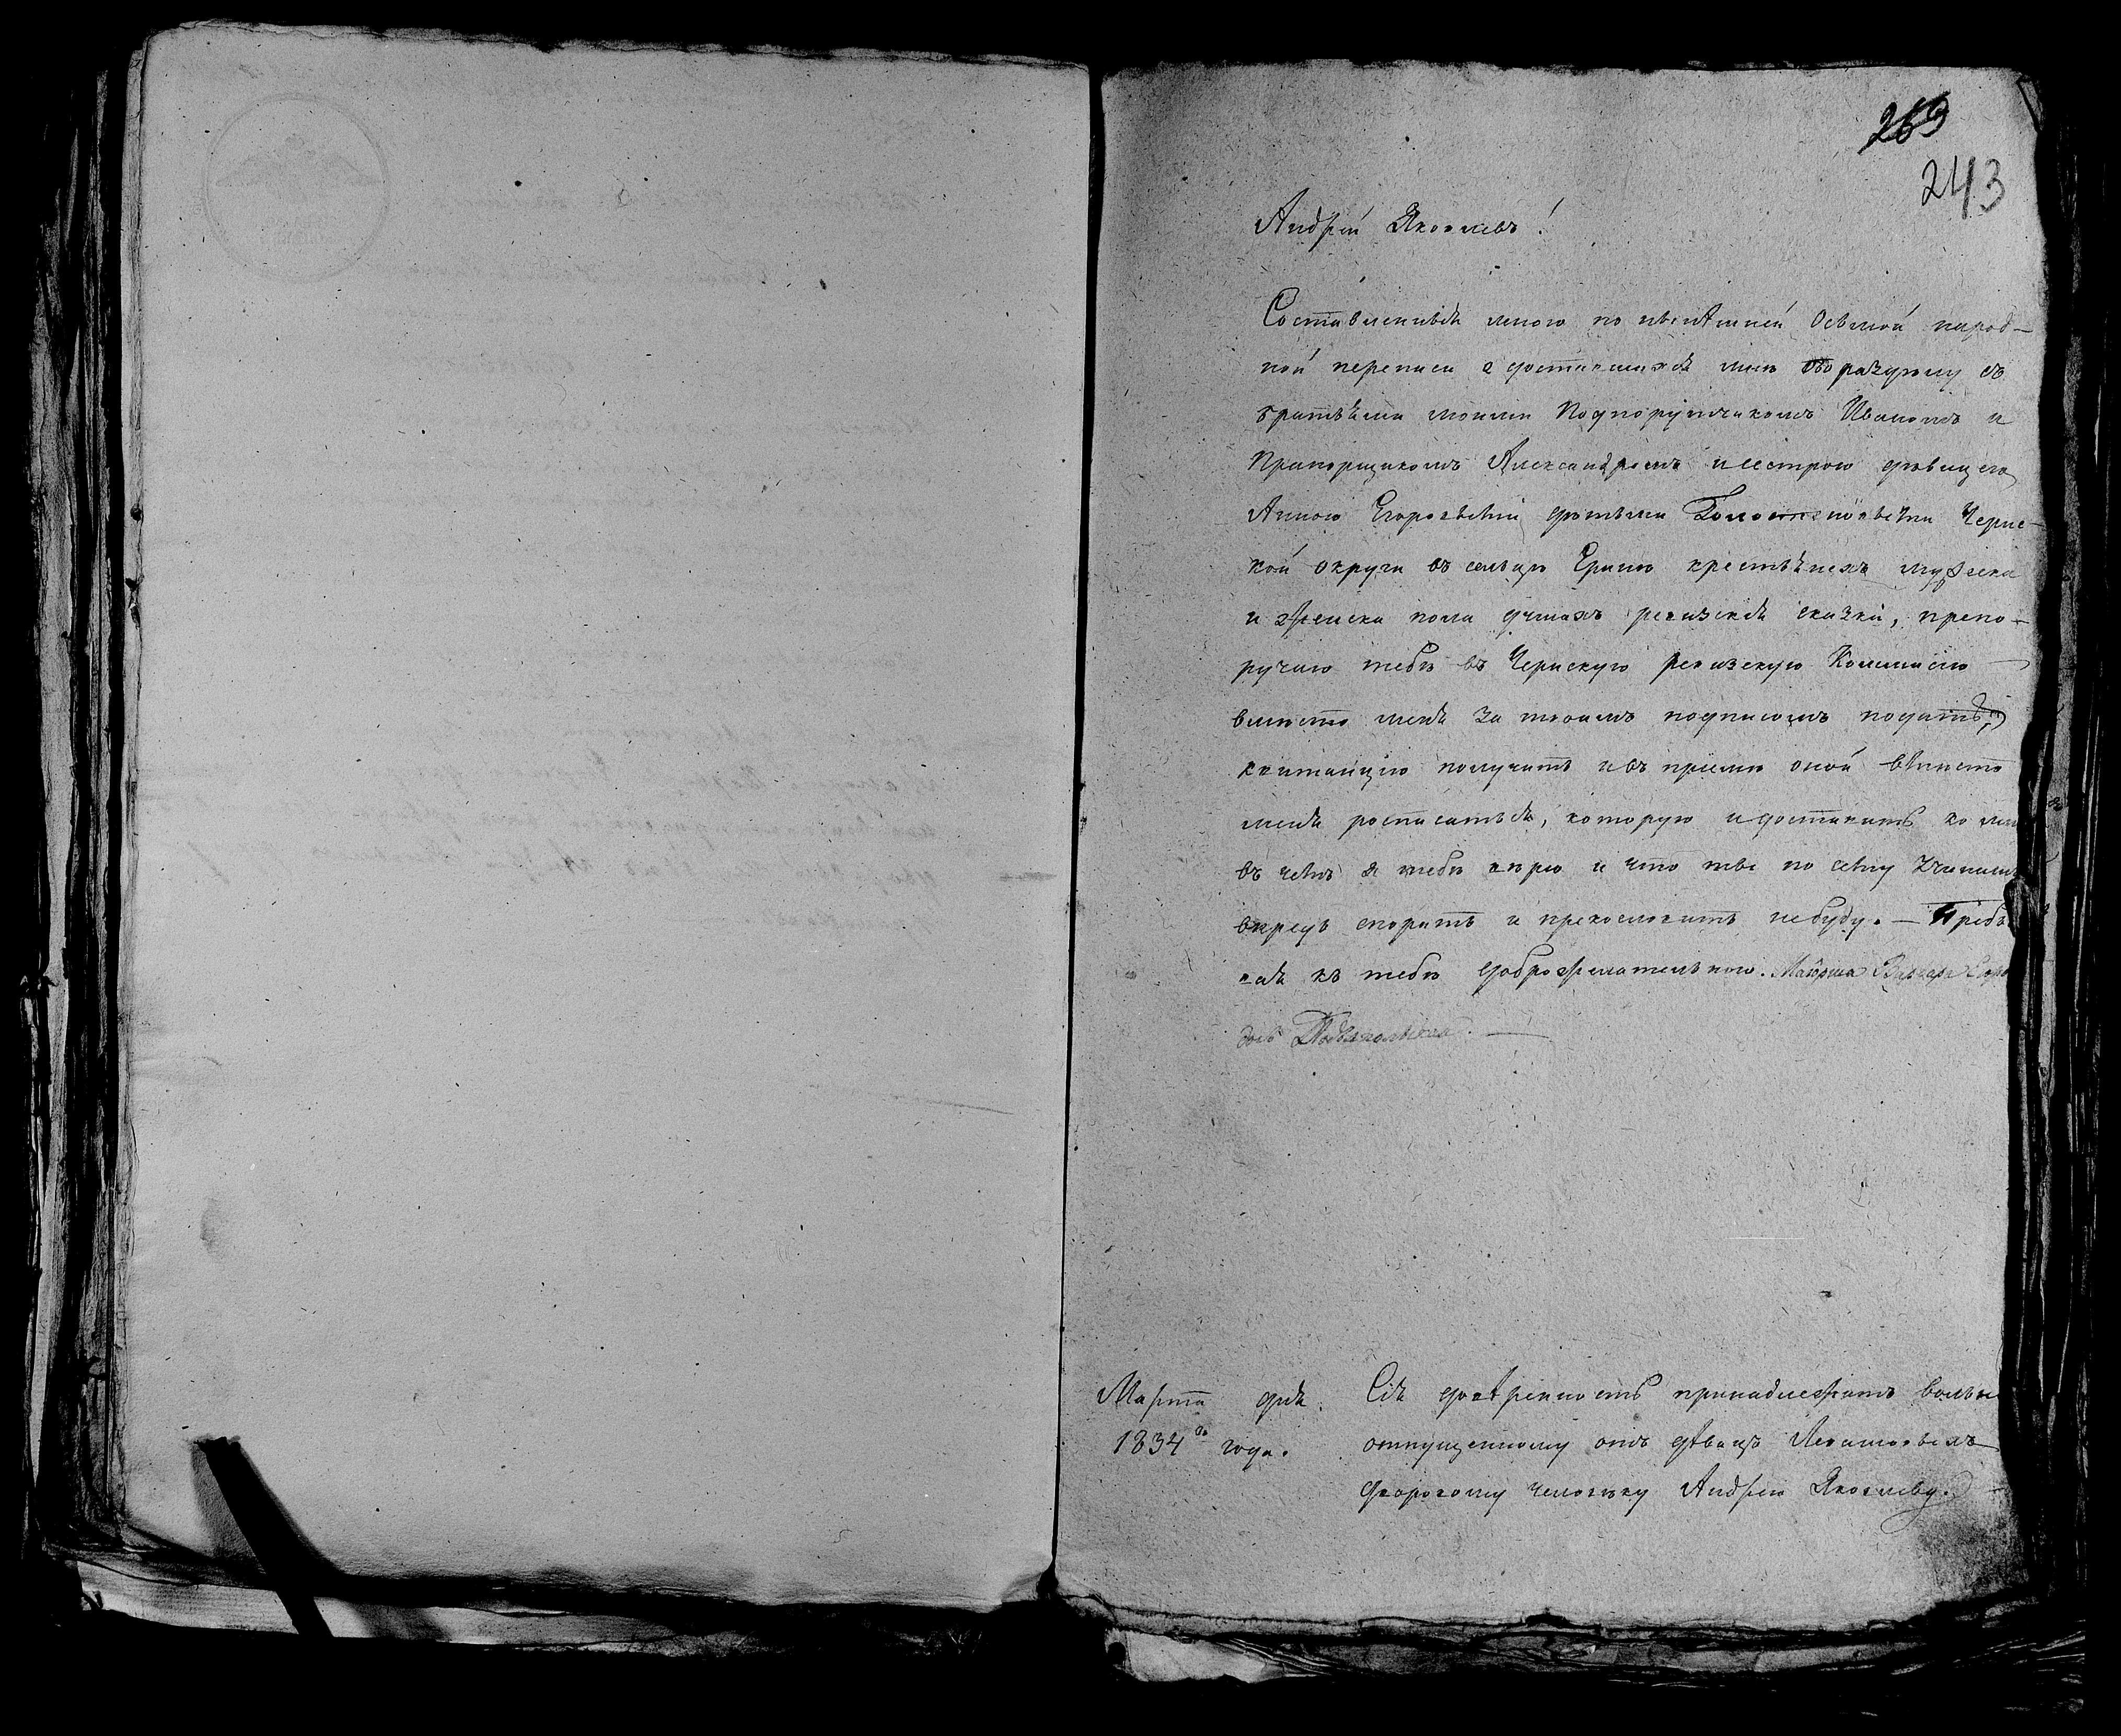 269
243
Андрей Яковлевъ!
Составленныя мною по нынѣшней осьмой народ-
ной переписи о доставшихся мнѣ по раздѣлу съ
братьями моими Подпорутчикомъ Иваномъ и
Прапорщикомъ Александромъ и сестрою дѣвицею
Анною Егоровыми дѣтьми Чернс-
кой округи въ сельцѣ Ерино крестьянехъ мужеска
и женска пола душахъ ревизскія сказки, препо-
ручаю тебѣ въ Чернскую ревизскую Коммисію
вмѣсто меня за твоимъ подписомъ подать,
квитанцію получить и въ пріемѣ оной вмѣсто
меня росписаться, которую и доставить ко мнѣ
въ чемъ я тебѣ вѣрю и что ты по сему учинишь
впредь спорить и прекословить небуду. — Пребы
вая къ тебѣ доброжелательною. Маіорша Варвара Егоро
дочь
Марта дня. Сія довѣренность принадлежитъ вольно
1834го года. отпущенному отъ дѣвицъ
дворовому человѣку Андрею Яковлеву.